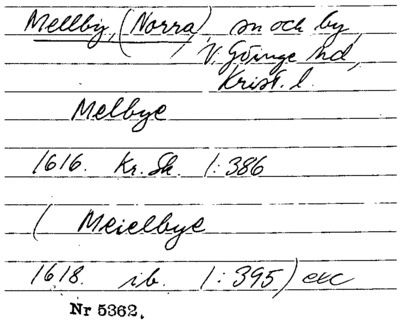 Mellby, (Norra) sn och by
V. Göinge hd,
Krist. l.
Melbye
1616. Kr. Sk. 1:386
( Meielbye
1618. ib. 1:395) exc
Nr 5362.